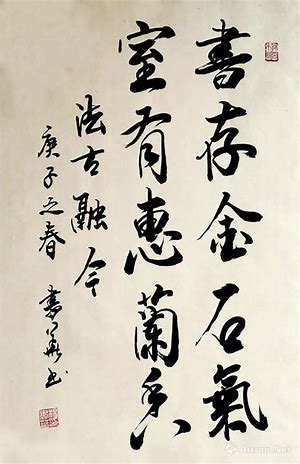 書存金石氣
室有惠蘭香
法古融今
庚子之春
書
Artron.Net